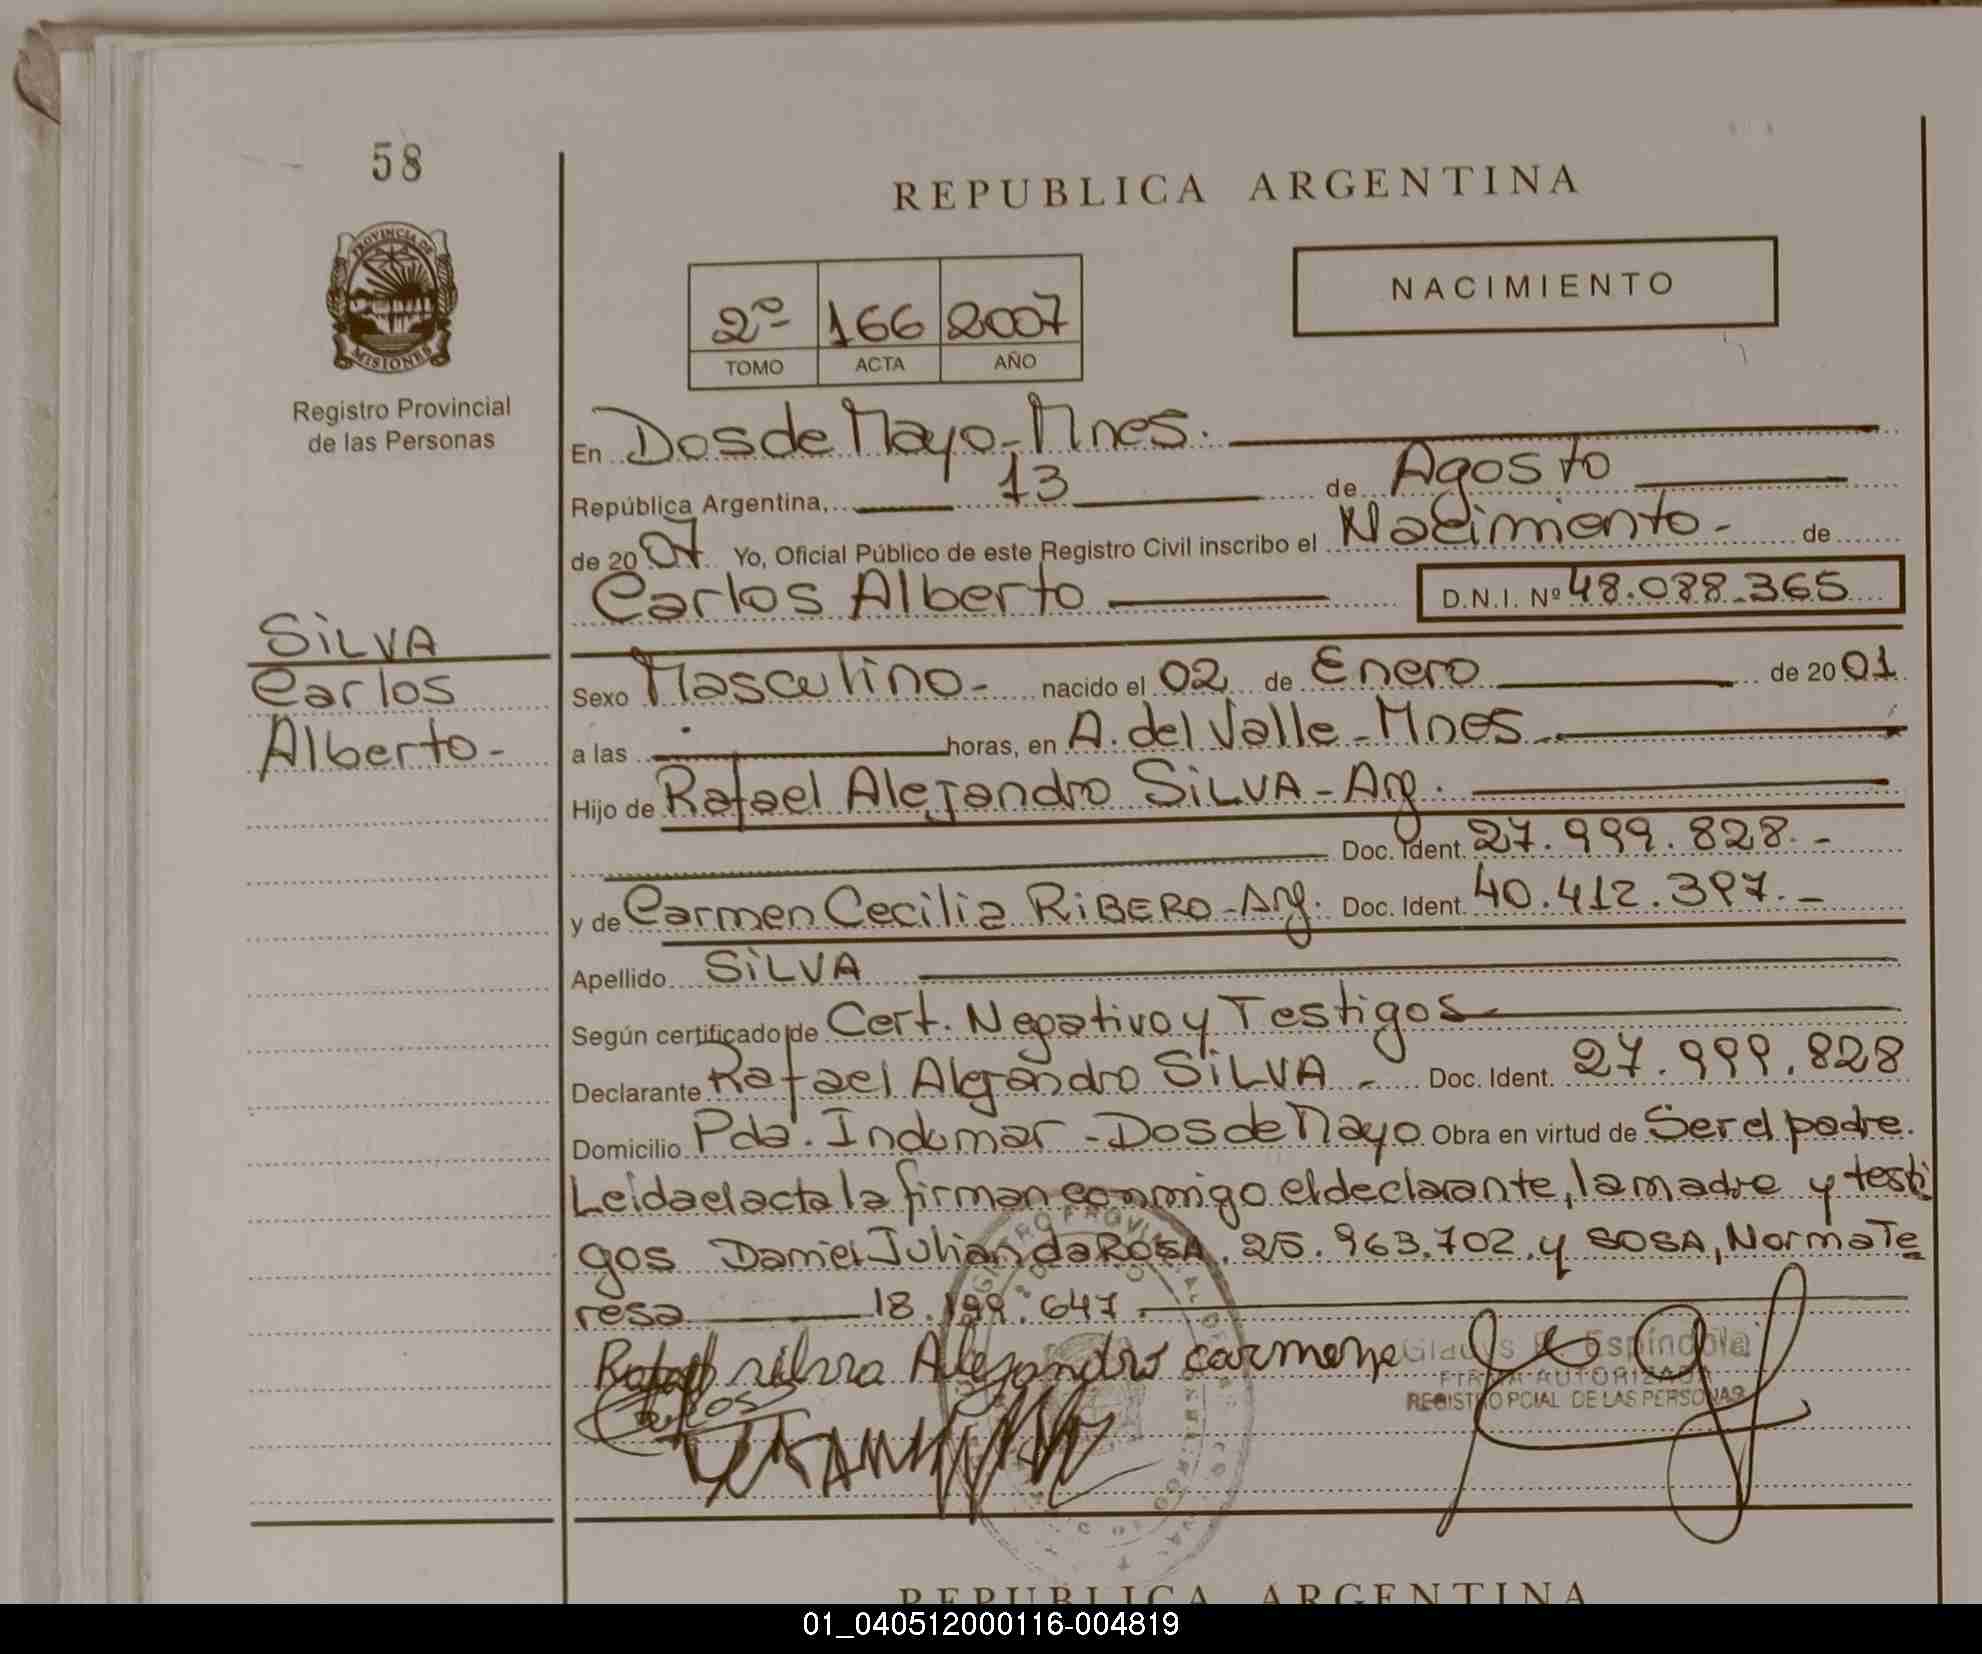 58
PROVINCIA DE
MISIONES
Registro Provincial
de las Personas
REPUBLICA ARGENTINA
2º 166 2007
TOMO ACTA AÑO
NACIMIENTO
En Dos de Mayo - Mnes.
República Argentina, 13 de Agosto
de 2007 Yo, Oficial Público de este Registro Civil inscribo el Nacimiento - de
Carlos Alberto D.N.I. Nº 48.088.365
SiLVA
Carlos
Alberto -
Sexo Masculino - nacido el 02 de Enero de 2001
a las horas, en A. del Valle - Mnes
Hijo de Rafael Alejandro SiLVA - Arg.
Doc. Ident. 27.999.828. -
y de Carmen Cecilia RiBERO - Arg. Doc. Ident. 40.412.397. -
Apellido SiLVA
Según certificado de Cert. Negativo y Testigos
Declarante Rafael Alejandro SiLVA - Doc. Ident. 27.999.828
Domicilio Pda. Indumar - Dos de Mayo Obra en virtud de Ser el padre.
Leida el acta la firman conmigo el declarante, la madre y testi
gos Daniel Julian da ROSA. 25.963.702. y SOSA, Norma Te
resa 18.199.647.
Rafael silvra Alejandro carmen
Carlos
Gladys Espindola
FIRMA AUTORIZADA
REGISTRO PCIAL DE LAS PERSONAS
REPUBLICA ARGENTINA
01_040512000116-004819